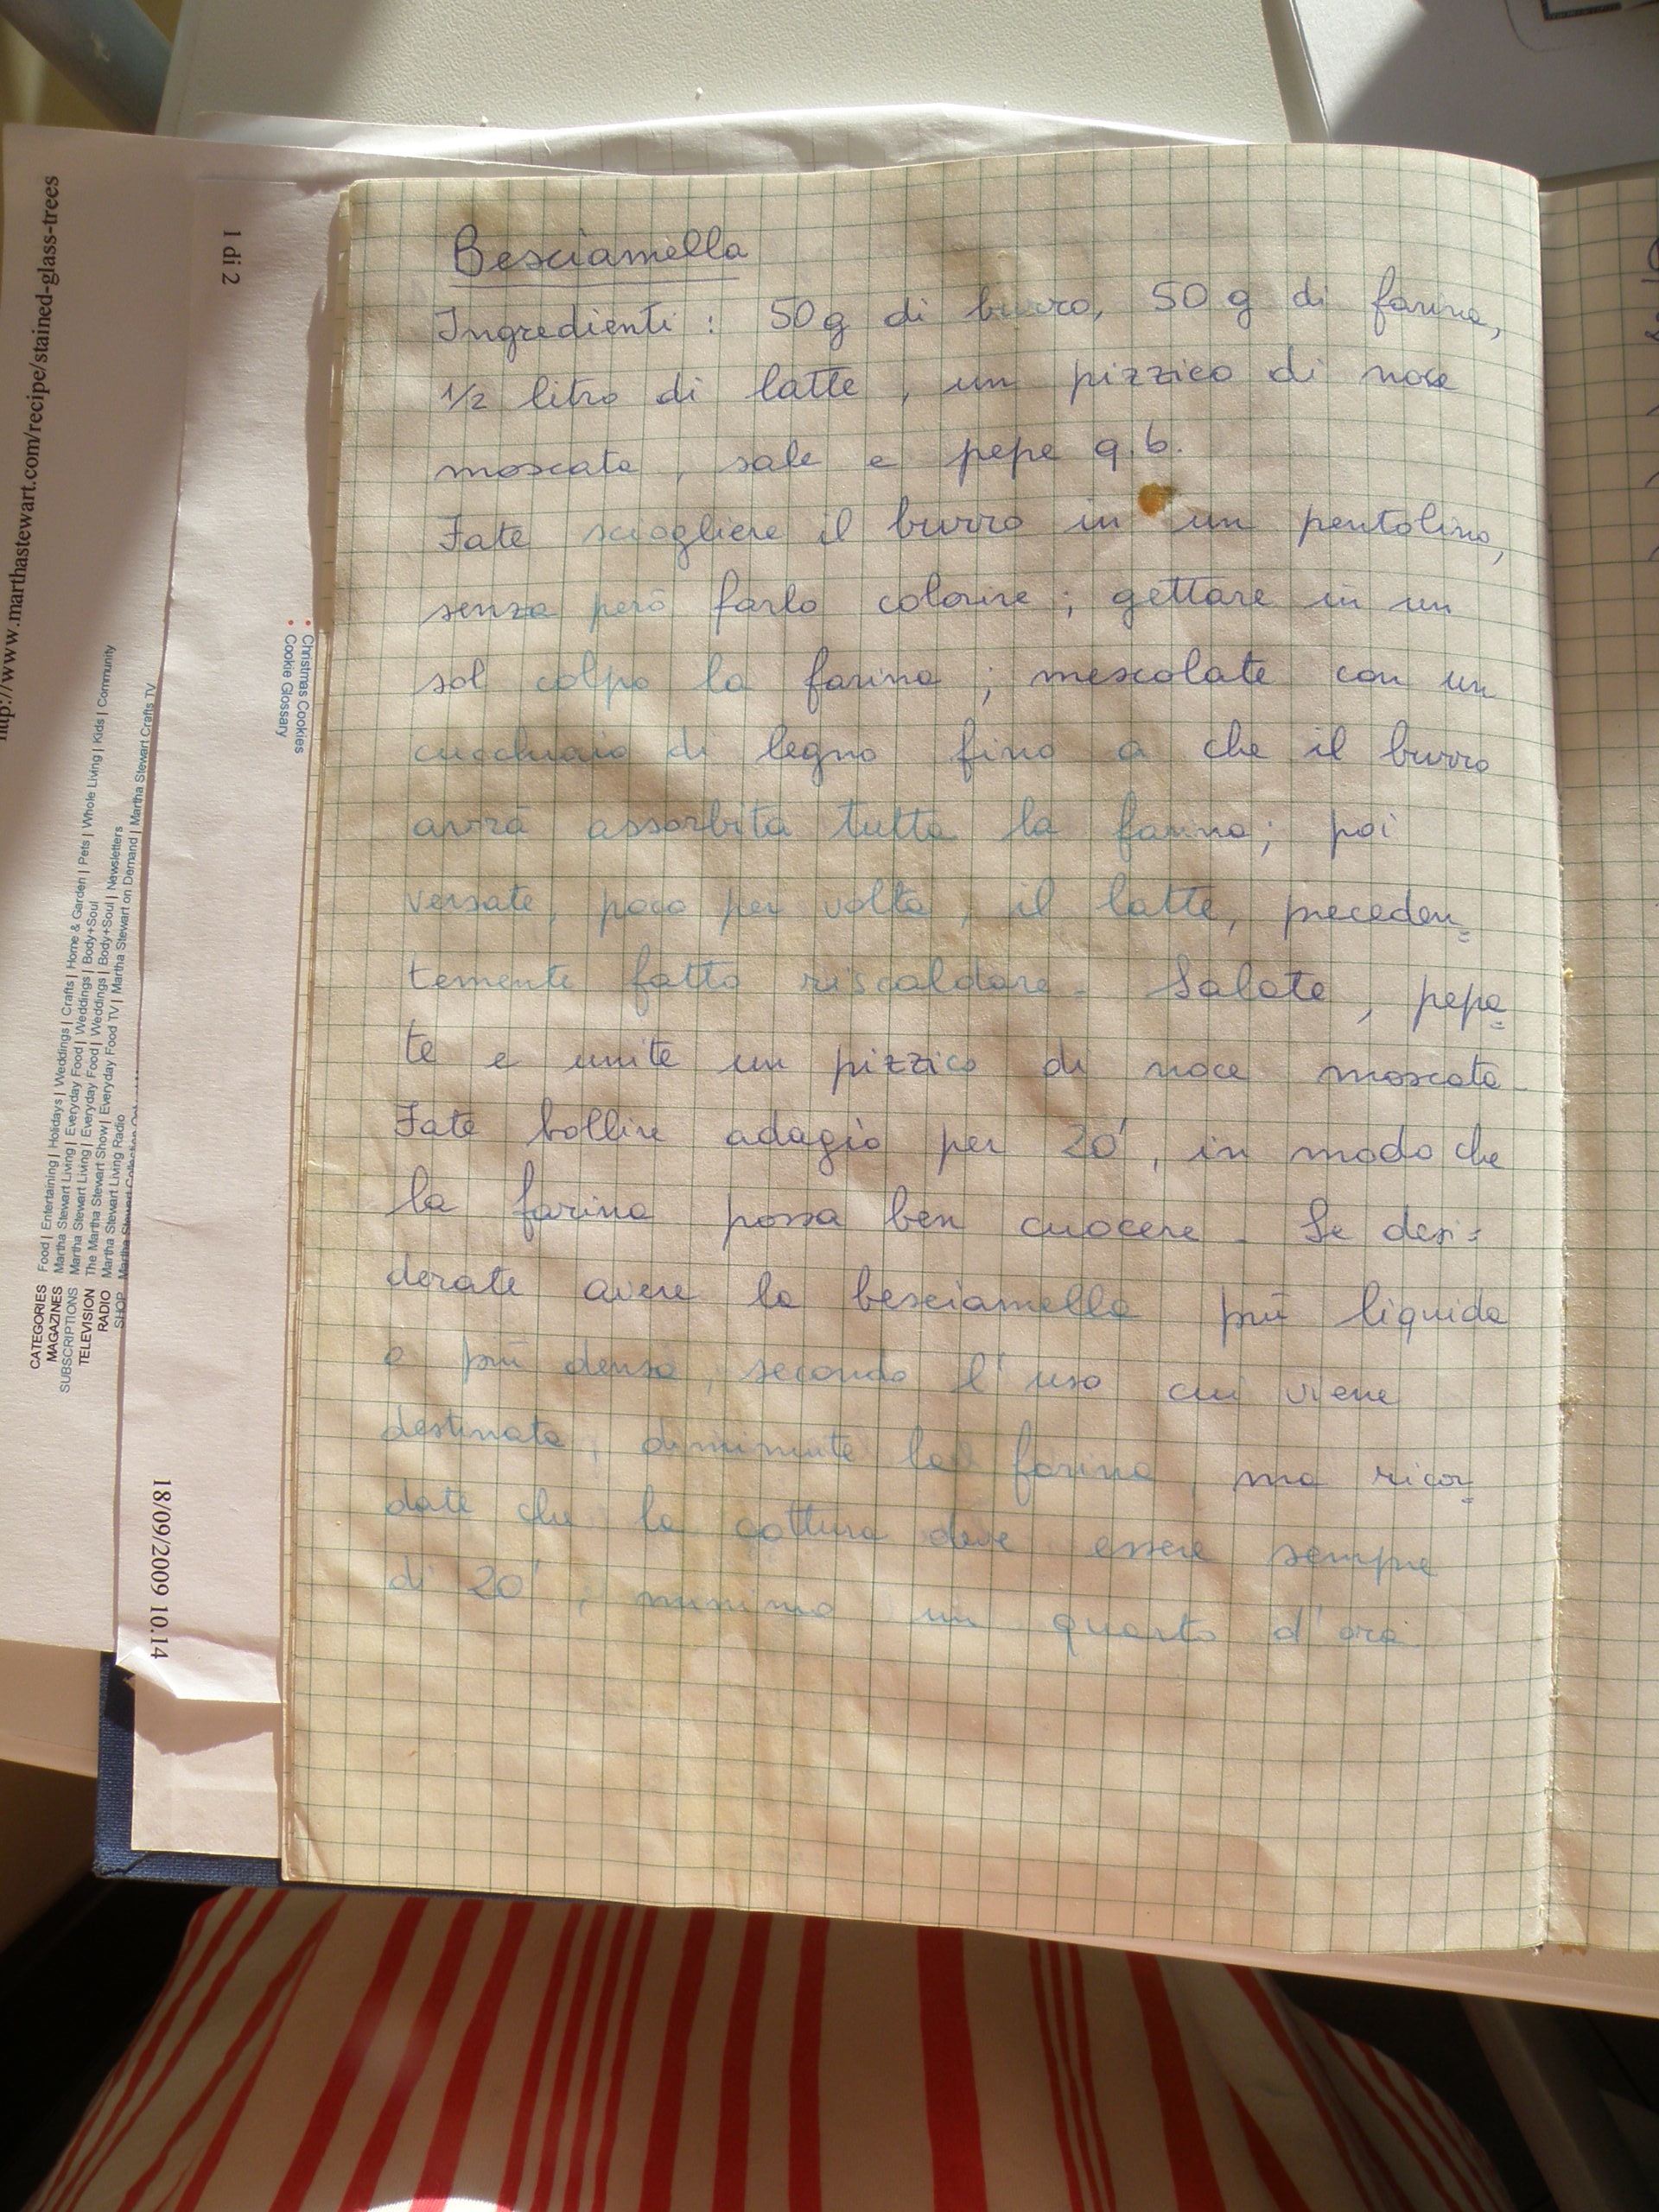 Besciamella
Ingredienti : 50 g di burro, 50 g di farina,
1/2 litro di latte , un pizzico di noce
moscata , sale e pepe q.b.
Fate sciogliere il burro in un pentolino,
senza però farlo colorire ; gettare in un
sol colpo la farina ; mescolate con un
cucchiaio di legno fino a che il burro
avrà assorbita tutta la farina; poi
versate, poco per volta, il latte, preceden=
temente fatto riscaldare - Salate , pepa=
te e unite un pizzico di noce moscata -
Fate bollire adagio per 20', in modo che
la farina possa ben cuocere - Se desi=
derate avere la besciamella più liquida
o più densa, secondo l'uso cui viene
destinata, diminuite la farina, ma ricor=
date che la cottura deve essere sempre
di 20', minimo un quarto d'ora
http://www.marthastewart.com/recipe/stained-glass-trees
1 di 2
18/09/2009 10.14
Christmas Cookies
Cookie Glossary
CATEGORIES Food | Entertaining | Holidays | Weddings | Crafts | Home & Garden | Pets | Whole Living | Kids | Community
MAGAZINES Martha Stewart Living | Everyday Food | Weddings | Body+Soul
SUBSCRIPTIONS Martha Stewart Living | Everyday Food | Weddings | Body+Soul | Newsletters
TELEVISION The Martha Stewart Show | Everyday Food TV | Martha Stewart on Demand | Martha Stewart Crafts TV
RADIO Martha Stewart Living Radio
SHOP Martha Stewart Collection